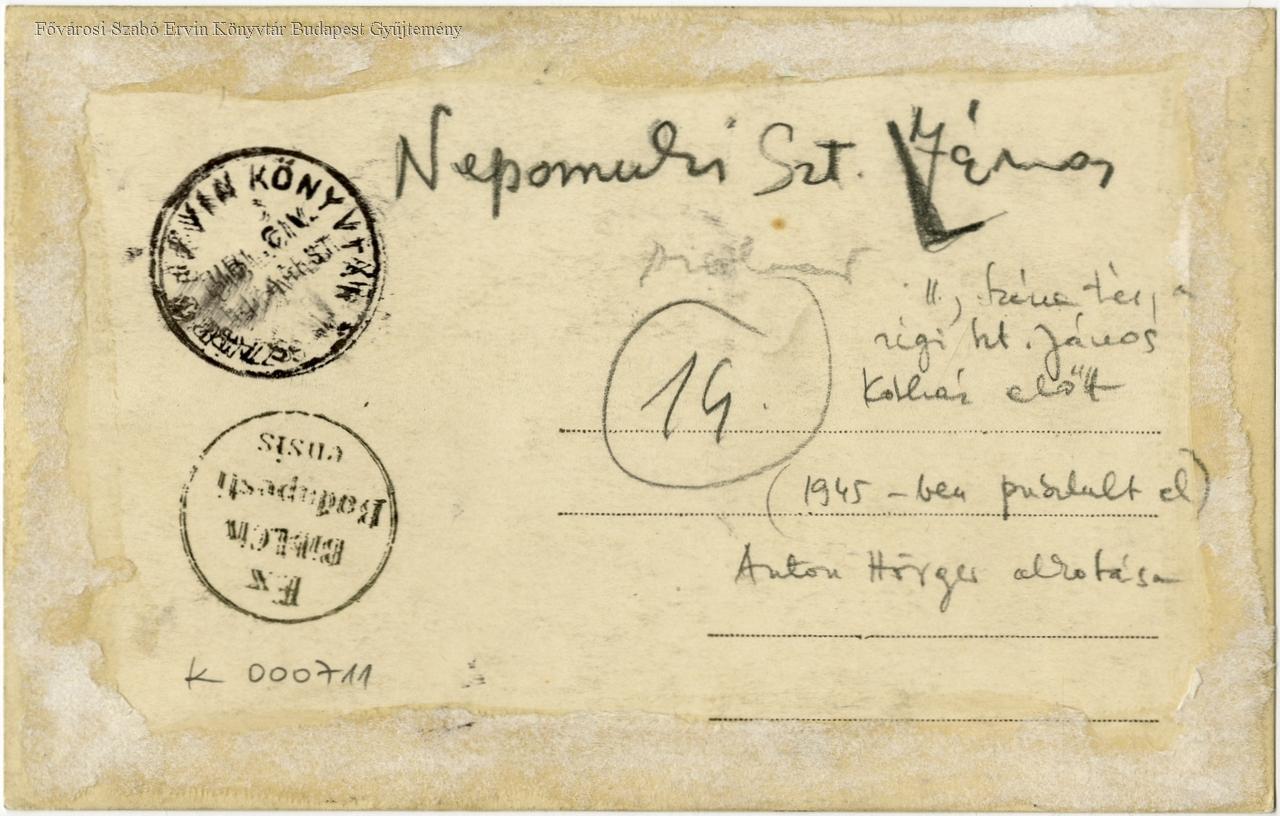 Fővárosi Szabó Ervin Könyvtár Budapest Gyűjtemény
Nepomuki Szt. János
ERVIN KÖNYVTÁR
II., Széna tér, a
régi Szt. János
Kórház előtt
14.
(1945-ben pusztult el)
Anton Hörger alkotása
Ex
Bibl. Civ.
Budapesti
ensis
K 000711